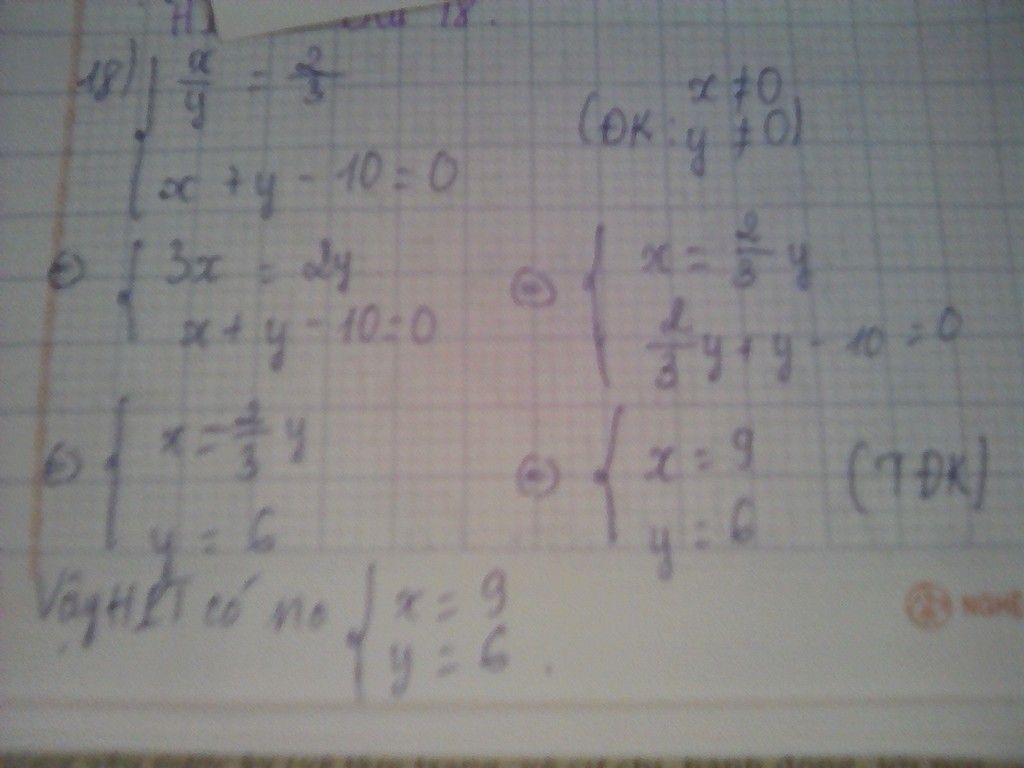 18.
18) { x/y = 2/3
(ĐK: x ≠ 0
y ≠ 0)
x + y - 10 = 0
⇔ { 3x = 2y
x + y - 10 = 0
⇔ { x = 2/3 y
2/3 y + y - 10 = 0
⇔ { x = 2/3 y
y = 6
⇔ { x = 9
y = 6
(TĐK)
Vậy HPT có no { x = 9
y = 6.
NGHE